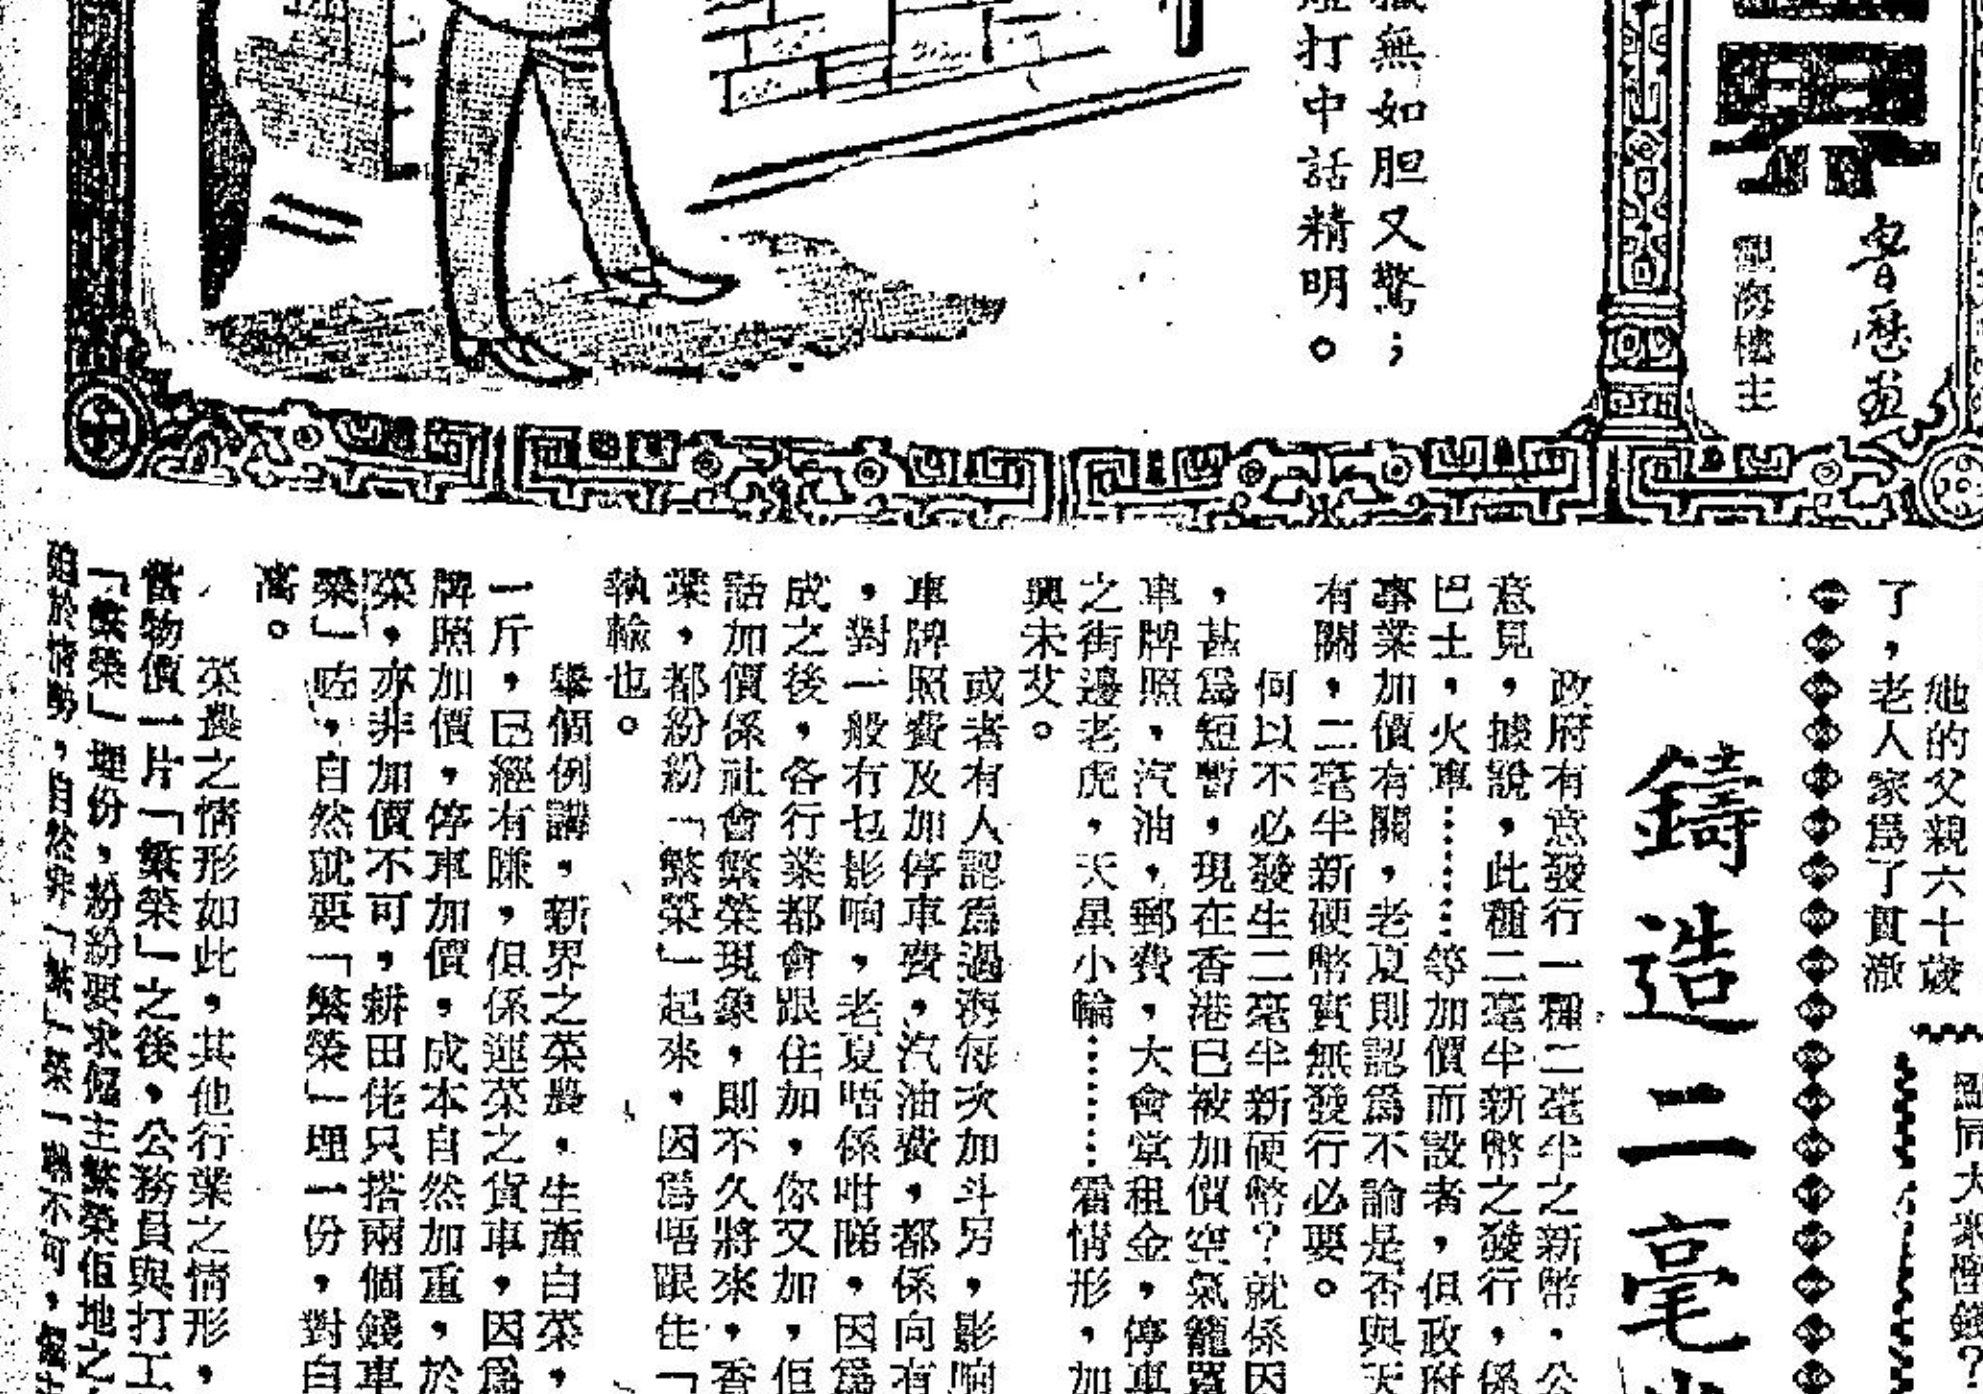 魯歷
觀海樓主
無如胆又驚；
打中話精明。
她的父親六十歲
了，老人家爲了貫澈
同大來慳錢？
鑄造二毫
政府有意發行一種二毫半之新幣，公
意見，據說，此種二毫半新幣之發行，係
巴士，火車……等加價而設者，但政府
事業加價有關，老夏則認爲不論是否與天
有關，二毫半新硬幣實無發行必要。
何以不必發生二毫半新硬幣？就係因
，甚爲短暫，現在香港已被加價空氣籠罩
車牌照，汽油，郵費，大會堂租金，停車
之街邊老虎，天星小輪……霜情形，加
興未艾。
或者有人認爲過海每次加斗另，影响
車牌照費及加停車費，汽油費，都係向有
，對一般冇乜影响，老夏唔係咁睇，因爲
成之後，各行業都會跟住加，你又加，佢
話加價係社會繁榮現象，則不久將來，香
業，都紛紛「繁榮」起來，因爲唔跟住「
執輸也。
舉個例講，新界之菜農，生產白菜，
一斤，已經有賺，但係運菜之貨車，因爲
牌照加價，停車加價，成本自然加重，於
菜，亦非加價不可，耕田佬只搭兩個錢車
榮」咗，自然就要「繁榮」埋一份，對白
高。
菜農之情形如此，其他行業之情形，
當物價一片「繁榮」之後，公務員與打工
「繁榮」埋份，紛紛要求僱主繁榮佢地之
迫於情勢，自然非「繁榮」一場不可，